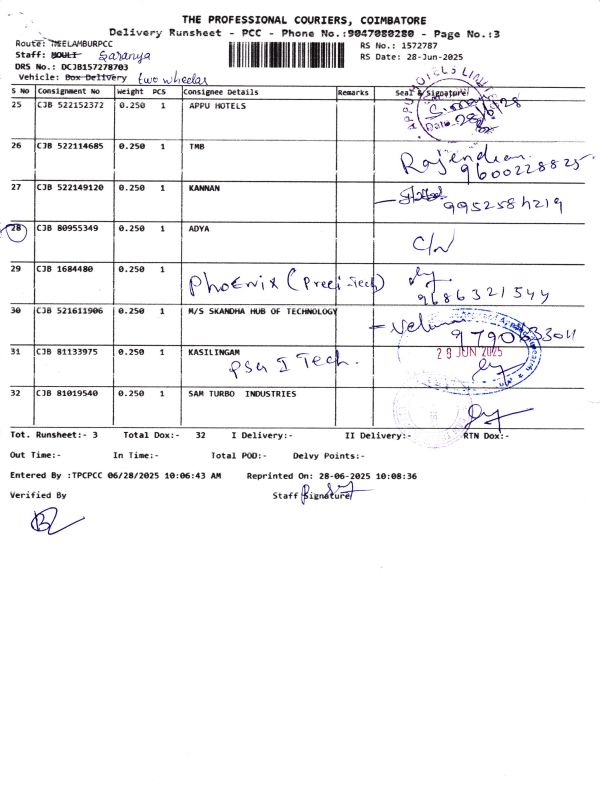 THE PROFESSIONAL COURIERS, COIMBATORE
Delivery Runsheet - PCC - Phone No.:9047080280 - Page No.:3
Route: NEELAMBURPCC
RS No.: 1572787
Staff: MOULI Saranya
RS Date: 28-Jun-2025
DRS No.: DCJB157278703
Vehicle: Box Delivery two wheeler
S No Consignment No Weight PCS Consignee Details Remarks Seal & Signature
25 CJB 522152372 0.250 1 APPU HOTELS
26 CJB 522114685 0.250 1 TMB Rajendran
9600228825
27 CJB 522149120 0.250 1 KANNAN
9952584219
28 CJB 80955349 0.250 1 ADYA C/N
29 CJB 1684480 0.250 1
Phoenix (Preci-Tech)
9686321544
30 CJB 521611906 0.250 1 M/S SKANDHA HUB OF TECHNOLOGY
9790633011
31 CJB 81133975 0.250 1 KASILINGAM
PSG I Tech.
28 JUN 2025
32 CJB 81019540 0.250 1 SAM TURBO INDUSTRIES
Tot. Runsheet:- 3 Total Dox:- 32 I Delivery:- II Delivery:- RTN Dox:-
Out Time:- In Time:- Total POD:- Delvy Points:-
Entered By :TPCPCC 06/28/2025 10:06:43 AM Reprinted On: 28-06-2025 10:08:36
Verified By Staff Signature